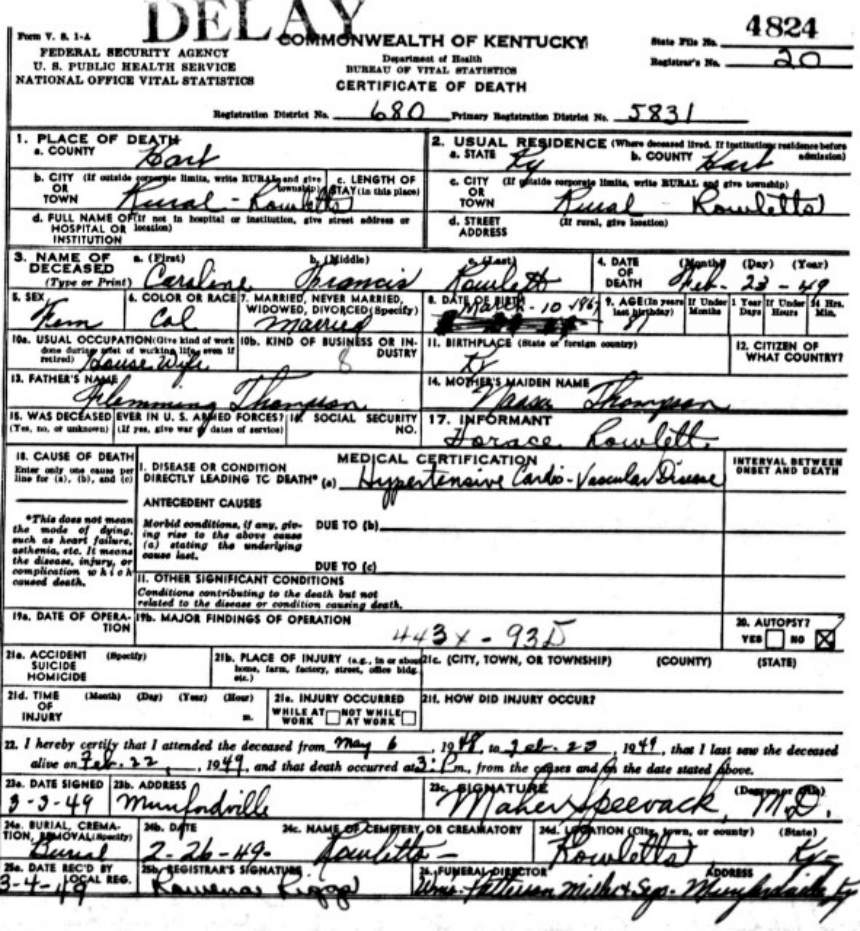 DELAY
Form V. S. 1-A
FEDERAL SECURITY AGENCY
U. S. PUBLIC HEALTH SERVICE
NATIONAL OFFICE VITAL STATISTICS
COMMONWEALTH OF KENTUCKY
Department of Health
BUREAU OF VITAL STATISTICS
CERTIFICATE OF DEATH
State File No. 4824
Registrar's No. 20
Registration District No. 680 Primary Registration District No. 5831
1. PLACE OF DEATH
a. COUNTY Hart
2. USUAL RESIDENCE (Where deceased lived. If institution: residence before admission)
a. STATE Ky b. COUNTY Hart
b. CITY (If outside corporate limits, write RURAL and give township) OR TOWN Rural - Rowletts
c. LENGTH OF STAY (in this place)
c. CITY (If outside corporate limits, write RURAL and give township) OR TOWN Rural Rowletts
d. FULL NAME OF (If not in hospital or institution, give street address or location) HOSPITAL OR INSTITUTION
d. STREET ADDRESS (If rural, give location)
3. NAME OF DECEASED (Type or Print) a. (First) Caroline b. (Middle) Francis c. (Last) Rowlett
4. DATE OF DEATH (Month) (Day) (Year) Feb. 23-49
5. SEX Fem
6. COLOR OR RACE Col
7. MARRIED, NEVER MARRIED, WIDOWED, DIVORCED (Specify) Married
8. DATE OF BIRTH March - 10
9. AGE (In years last birthday) 81 If Under 1 Year Months Days If Under 24 Hrs. Hours Min.
10a. USUAL OCCUPATION (Give kind of work done during most of working life, even if retired) House Wife
10b. KIND OF BUSINESS OR INDUSTRY 8
11. BIRTHPLACE (State or foreign country) Ky
12. CITIZEN OF WHAT COUNTRY?
13. FATHER'S NAME Flemming Thompson
14. MOTHER'S MAIDEN NAME Thompson
15. WAS DECEASED EVER IN U. S. ARMED FORCES? (Yes, no, or unknown) (If yes, give war or dates of service)
16. SOCIAL SECURITY NO.
17. INFORMANT Horace Rowlett
18. CAUSE OF DEATH
Enter only one cause per line for (a), (b), and (c)
MEDICAL CERTIFICATION
INTERVAL BETWEEN ONSET AND DEATH
I. DISEASE OR CONDITION DIRECTLY LEADING TO DEATH* (a) Hypertensive Cardio-Vascular Disease
ANTECEDENT CAUSES
*This does not mean the mode of dying, such as heart failure, asthenia, etc. It means the disease, injury, or complication which caused death.
Morbid conditions, if any, giving rise to the above cause (a) stating the underlying cause last.
DUE TO (b)
DUE TO (c)
II. OTHER SIGNIFICANT CONDITIONS
Conditions contributing to the death but not related to the disease or condition causing death.
19a. DATE OF OPERATION
19b. MAJOR FINDINGS OF OPERATION
443X - 93D
20. AUTOPSY? YES NO
21a. ACCIDENT SUICIDE HOMICIDE (Specify)
21b. PLACE OF INJURY (e.g., in or about home, farm, factory, street, office bldg. etc.)
21c. (CITY, TOWN, OR TOWNSHIP) (COUNTY) (STATE)
21d. TIME OF INJURY (Month) (Day) (Year) (Hour) m.
21e. INJURY OCCURRED WHILE AT WORK NOT WHILE AT WORK
21f. HOW DID INJURY OCCUR?
22. I hereby certify that I attended the deceased from May 6, 1948, to Feb. 23, 1949, that I last saw the deceased
alive on Feb. 22, 1949, and that death occurred at 3: P m., from the causes and on the date stated above.
23a. DATE SIGNED 3-3-49
23b. ADDRESS Munfordville
23c. SIGNATURE Maher Speevack, M.D. (Degree or title)
24a. BURIAL, CREMATION, REMOVAL (Specify) Burial
24b. DATE 2-26-49
24c. NAME OF CEMETERY OR CREMATORY Rowletts
24d. LOCATION (City, town, or county) (State) Rowletts Ky
25a. DATE REC'D BY LOCAL REG. 3-4-49
25b. REGISTRAR'S SIGNATURE Rowena
26. FUNERAL DIRECTOR Patterson ADDRESS Munfordville Ky